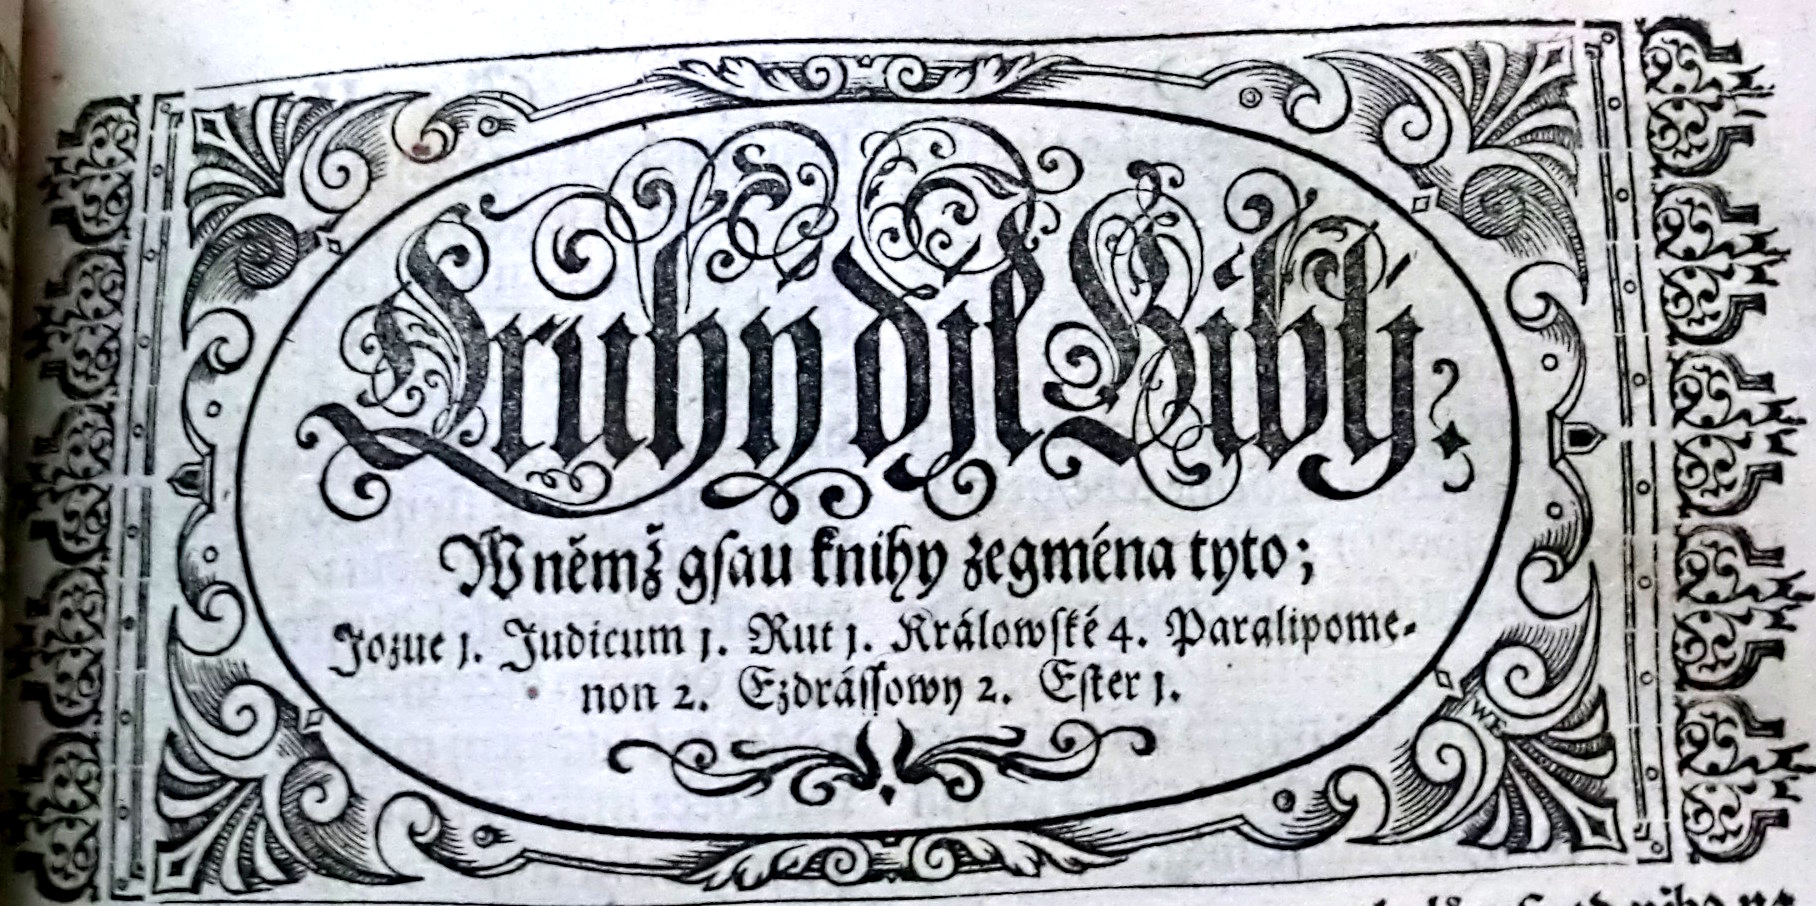 Druhý djl Biblj.
W němž gſau knihy zegména tyto;
Jozue 1. Judicum 1. Rut 1. Králowſké 4. Paralipome-
non 2. Ezdráſſowy 2. Eſter 1.
WE